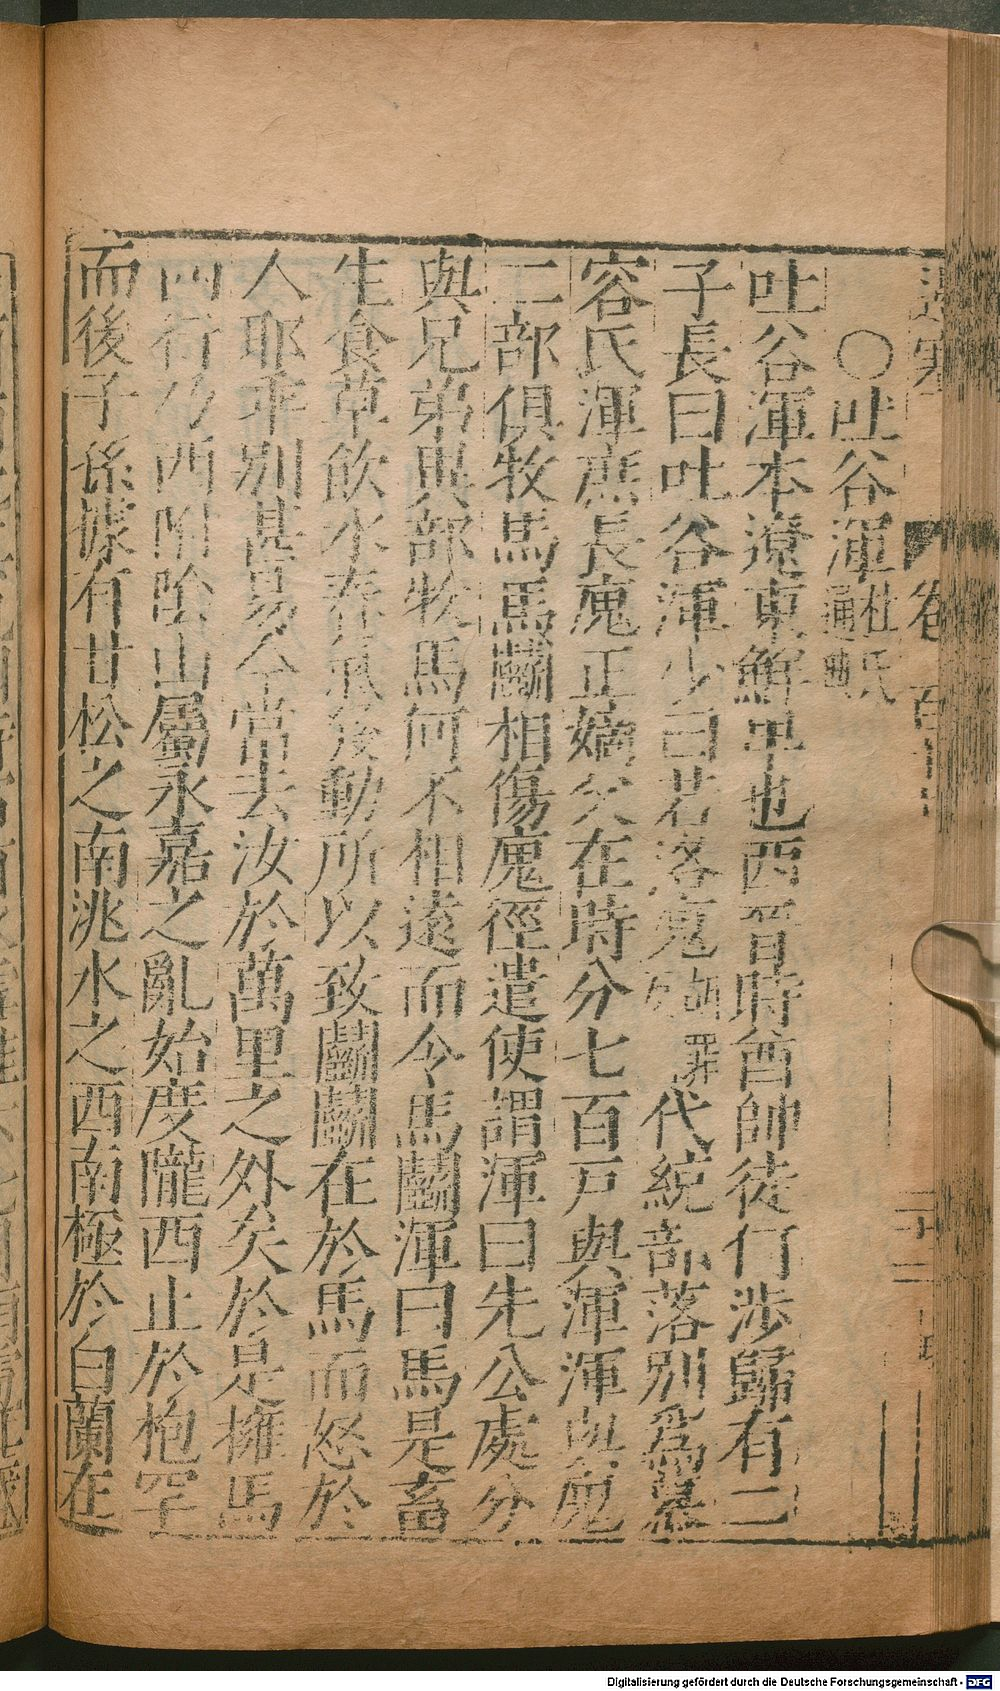 卷 百
○吐谷渾杜氏通典
吐谷渾本遼東鮮卑也西晉時酋帥徒何涉歸有二
子長曰吐谷渾少曰若洛廆 罪代統部落別爲慕
容氏渾庶長廆正嫡父在時分七百戶與渾渾與廆
二部俱牧馬馬鬭相傷廆徑遣使謂渾曰先公處分
與兄弟異部牧馬何不相遠而令馬鬭渾曰馬是畜
生食草飲水春氣發動所以致鬭鬭在於馬而怒於
人耶乖別甚易今當去汝於萬里之外矣於是擁馬
西行乃西附陰山屬永嘉之亂始度隴西止於枹罕
而後子孫據有甘松之南洮水之西南極於白蘭在
Digitalisierung gefördert durch die Deutsche Forschungsgemeinschaft - DFG